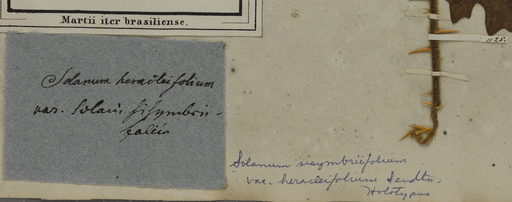 Martii iter brasiliense.
Solanum heracleifolium
var. Solani sisymbrii-
folii
Solanum sisymbriifolium
var. heracleifolium Sendtn.
Holotypus